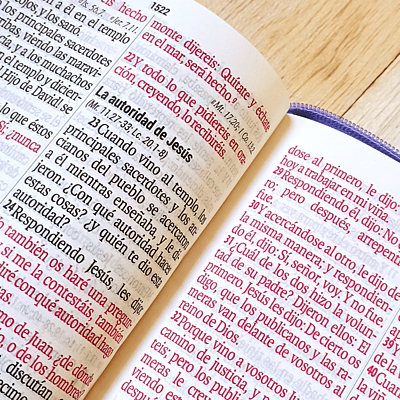 1522
y los sanó.
principales sacerdotes
viendo las maravi-
y a los muchachos
en el templo y dicien-
Hijo de David! se
lo que éstos
Sí; ¿nunca
hecho
monte dijereis: Quítate y échate
en el mar, será hecho.
22 Y todo lo que pidiereis en ora-
ción, creyendo, lo recibiréis.
La autoridad de Jesús
(Mr. 11.27-33; Lc. 20.1-8)
23 Cuando vino al templo, los
principales sacerdotes y los an-
cianos del pueblo se acercaron
a él mientras enseñaba, y le di-
jeron: ¿Con qué autoridad haces
estas cosas? ¿y quién te dio esta
autoridad?
24 Respondiendo Jesús, les dijo:
o también os haré una pregun-
si me la contestáis, también
diré con qué autoridad hago
mo de Juan, ¿de dónde
o, o de los hombres?
discutían
dose al primero, le dijo:
hoy a trabajar en mi viña.
29 Respondiendo él, dijo: No
pero después, arrepenti
30 Y acercándose al otro, le dijo de
la misma manera; y respondien-
do él, dijo: Sí, señor, voy. Y no fue
31 ¿Cuál de los dos hizo la volun-
tad de su padre? Dijeron ellos: El
primero. Jesús les dijo: De cierto os
digo, que los publicanos y las ra-
meras van delante de vosotros al
reino de Dios.
32 Porque vino a vosotros Juan en
camino de justicia, y no le creís-
teis; pero los publicanos y las ra-
meras le creyeron;
viendo esto,
después